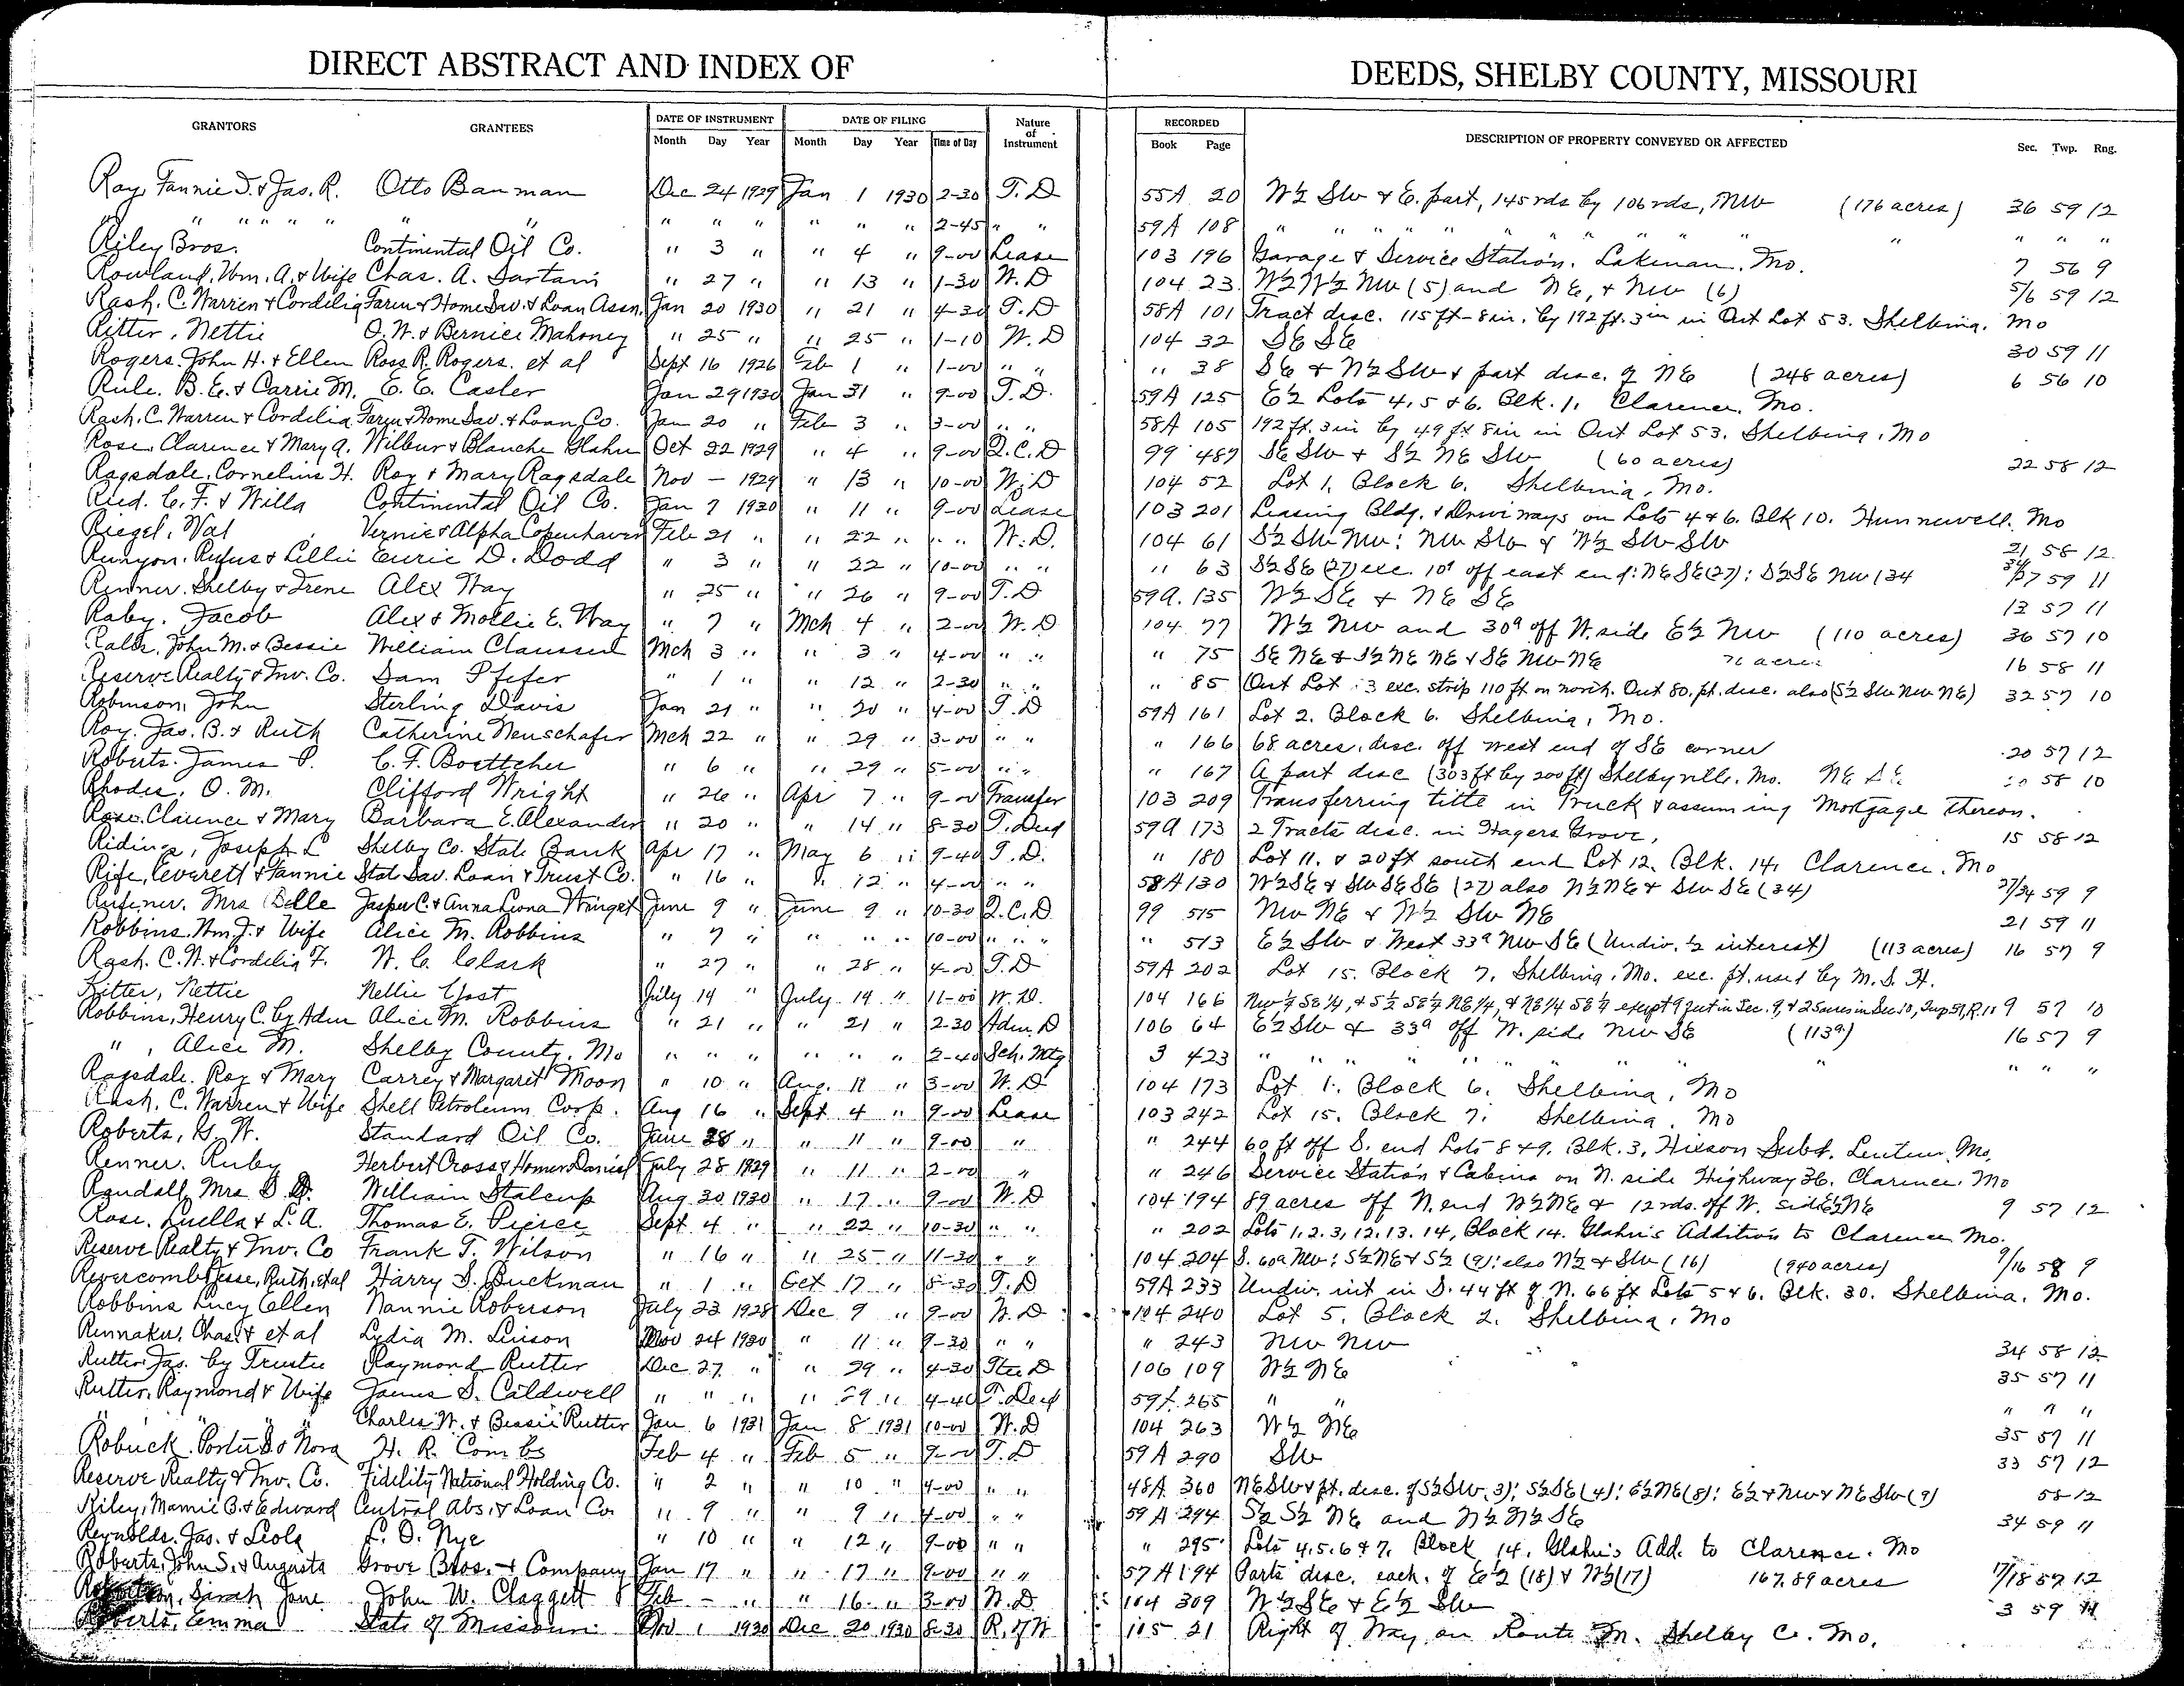 DIRECT ABSTRACT AND INDEX OF DEEDS, SHELBY COUNTY, MISSOURI
GRANTORS GRANTEES DATE OF INSTRUMENT DATE OF FILING Nature of Instrument RECORDED DESCRIPTION OF PROPERTY CONVEYED OR AFFECTED Sec. Twp. Rng.
Month Day Year Month Day Year Time of Day Book Page
Ray, Fannie T. & Jas. R. Otto Bauman Dec 24 1929 Jan 1 1930 2-30 T. D 55A 20 W½ SW & E. part, 145 rds by 106 rds, NW (176 acres) 36 59 12
" " " " " " " " " " " " " 2-45 " " 59A 108 " " " " " " " " " " "
Riley Bros. Continental Oil Co. " 3 " " 4 " 9-00 Lease 103 196 Garage & Service Station. Lakenan, Mo. 7 56 9
Rowland, Wm. A. & Wife Chas. A. Sartain " 27 " " 13 " 1-30 W. D 104 23 W½ W½ NW (5) and NE, & NW (6) 5/6 59 12
Rash, C. Warren & Cordelia Farm & Home Sav. & Loan Assn. Jan 20 1930 " 21 " 4-30 T. D 58A 101 Tract disc. 115 ft-8 in. by 192 ft. 3 in in Out Lot 53. Shelbina, Mo
Ritter, Nettie O. W. & Bernice Mahoney " 25 " " 25 " 1-10 W. D 104 32 SE SE 30 59 11
Rogers, John H. & Ellen Ross R. Rogers, et al Sept 16 1926 Feb 1 " 1-00 " " " 38 SE & W½ SW & part disc. of NE (248 acres) 6 56 10
Rule, B. E. & Carrie M. E. E. Casler Jan 29 1930 Jan 31 " 9-00 T. D. 59A 125 E½ Lots 4, 5 & 6, Blk. 1, Clarence, Mo.
Rash, C. Warren & Cordelia Farm & Home Sav. & Loan Co. Jan 20 " Feb 3 " 3-00 " " 58A 105 192 ft. 3 in by 49 ft 8 in in Out Lot 53. Shelbina, Mo
Rose, Clarence & Mary A. Wilbur & Blanche Glahn Oct 22 1929 " 4 " 9-00 Q. C. D 99 487 SE SW & S½ NE SW (60 acres) 22 58 12
Ragsdale, Cornelius H. Roy & Mary Ragsdale Nov — 1929 " 13 " 10-00 W. D 104 52 Lot 1, Block 6, Shelbina, Mo.
Ried, C. F. & Willa Continental Oil Co. Jan 7 1930 " 11 " 9-00 Lease 103 201 Leasing Bldg. & Driveways on Lots 4 & 6. Blk 10. Hunnewell, Mo
Riegel, Val Vernie & Alpha Copenhaver Feb 21 " " 22 " " " W. D. 104 61 S½ SW NW; NW SW & W½ SW SW 21 58 12
Runyon, Rufus & Lillie Euric D. Dodd " 3 " " 22 " 10-00 " " " 63 S½ SE (27) exc. 10ª off east end; NE SE (27); S½ SE NW (34 34/27 59 11
Renner, Shelby & Irene Alex Way " 25 " " 26 " 9-00 T. D 59A. 135 W½ SE & NE SE 13 57 11
Raby, Jacob Alex & Mollie E. Way " 7 " Mch 4 " 2-00 W. D 104 77 W½ NW and 30ª off W. side E½ NW (110 acres) 36 57 10
John M. & Bessie William Claussen Mch 3 " " 3 " 4-00 " " " 75 SE NE & S½ NE NE & SE NW NE 16 58 11
Reserve Realty & Inv. Co. Sam Pfefer " 1 " " 12 " 2-30 " " " 85 Out Lot 3 exc. strip 110 ft on north. Out 80. pt. disc. also (S½ SW NW NE) 32 57 10
Robinson, John Sterling Davis Jan 21 " " 20 " 4-00 T. D 59A 161 Lot 2. Block 6. Shelbina, Mo.
Roy, Jas. B. & Ruth Catherine Neuschafer Mch 22 " " 29 " 3-00 " " " 166 68 acres, disc. off west end of SE corner 20 57 12
Roberts, James P. C. F. Boettcher " 6 " " 29 " 5-00 " " " 167 A part disc (303 ft by 200 ft) Shelbyville, Mo. NE SE 58 10
Rhodes, O. M. Clifford Wright " 26 " Apr 7 " 9-00 Transfer 103 209 Transferring title in Truck & assuming Mortgage thereon.
Rose, Clarence & Mary Barbara E. Alexander " 20 " " 14 " 8-30 T. Deed 59A 173 2 Tracts disc. in Hagers Grove, 15 58 12
Ridings, Joseph L Shelby Co. State Bank Apr 17 " May 6 " 9-40 T. D. " 180 Lot 11, & 20 ft south end Lot 12, Blk. 14, Clarence, Mo
Rife, Everett & Fannie State Sav. Loan & Trust Co. " 16 " " 12 " 4-00 " " 58A 130 W½ SE & SW SE SE (27) also N½ NE & SW SE (34) 27/34 59 9
Rufener, Mrs Belle Jasper C. & Anna Leona Winget June 9 " June 9 " 10-30 Q. C. D 99 515 NW NE & W½ SW NE 21 59 11
Robbins, Wm. J. & Wife Alice M. Robbins " 7 " " " " 10-00 " " " " 513 E½ SW & West 33ª NW SE (Undiv. ½ interest) (113 acres) 16 57 9
Rash, C. W. & Cordelia F. W. C. Clark " 27 " " 28 " 4-00 T. D 59A 202 Lot 15. Block 7, Shelbina, Mo. exc. pt. used by M. S. H.
Ritter, Nettie Nellie Yost July 14 " July 14 " 11-00 W. D. 104 166 NW¼ SE¼, & S½ SE¼ NE¼, & NE¼ SE¼ except 9 feet in Sec. 9, & 25 acres in Sec 10, Twp 57, R. 10 9 57 10
Robbins, Henry C. by Adm Alice M. Robbins " 21 " " 21 " 2-30 Adm. D 106 64 E½ SW & 33ª off W. side NW SE (113ª) 16 57 9
" , Alice M. Shelby County, Mo " " " " " " 2-40 Sch. Mtg 3 423 " " " " " " " " " " "
Ragsdale, Roy & Mary Carrey & Margaret Moon " 10 " Aug. 11 " 3-00 W. D 104 173 Lot 1. Block 6. Shelbina, Mo
Rash, C. Warren & Wife Shell Petroleum Corp. Aug 16 " Sept 4 " 9-00 Lease 103 242 Lot 15. Block 7. Shelbina, Mo
Roberts, G. W. Standard Oil Co. June 28 " " 11 " 9-00 " " 244 60 ft off S. end Lots 8 & 9. Blk. 3, Hixson Subd. Lentner, Mo.
Renner, Ruby Herbert Cross & Homer Daniel July 28 1929 " 11 " 2-00 " " 246 Service Station & Cabins on N. side Highway 36. Clarence, Mo
Randall, Mrs S. D. William Stalcup Aug 30 1930 " 17 " 9-00 W. D 104 194 89 acres off N. end W½ NE & 12 rds. off W. side E½ NE 9 57 12
Rose, Luella & L. A. Thomas E. Pierce Sept 4 " " 22 " 10-30 " " " 202 Lots 1, 2, 3, 12, 13, 14, Block 14. Glahn's Addition to Clarence Mo.
Reserve Realty & Inv. Co Frank T. Wilson " 16 " " 25 " 11-30 " " 104 204 S. 60a NW; S½ NE & S½ (9); also N½ & SW (16) (940 acres) 9/16 58 9
Revercomb, Jesse, Ruth, et al Harry S. Buckman " 1 " Oct 17 " 8-30 T. D 59A 233 Undiv. int in S. 44 ft of N. 66 ft Lots 5 & 6. Blk. 30. Shelbina, Mo.
Robbins, Lucy Ellen Nannie Roberson July 23 1928 Dec 9 " 9-00 W. D 104 240 Lot 5, Block 2, Shelbina, Mo
Rennaker, Chas. & et al Lydia M. Linson Nov 24 1930 " 11 " 9-30 " " " 243 NW NW 34 58 12
Rutter, Jas. by Trustee Raymond Rutter Dec 27 " " 29 " 4-30 Stee D 106 109 W½ NE 35 57 11
Rutter, Raymond & Wife James S. Caldwell " " " " 29 " 4-40 T. Deed 59A 265 " " " " "
" " " Charles W. & Bessie Rutter Jan 6 1931 Jan 8 1931 10-00 W. D 104 263 W½ NE 35 57 11
Robuck, Porter D & Nora H. R. Combs Feb 4 " Feb 5 " 9-00 T. D 59A 290 SW 33 57 12
Reserve Realty & Inv. Co. Fidelity National Holding Co. " 2 " " 10 " 4-00 " " 48A 360 NE SW & pt. disc. of S½ SW, 3); S½ SE (4); E½ NE (8); E½ & NW & NE SW (9) 58 12
Riley, Mamie B. & Edward Central Abs. & Loan Co. " 9 " " 9 " 4-00 " " 59A 294 S½ S½ NE and N½ N½ SE 34 59 11
Reynolds, Jas. & Leola L. O. Nye " 10 " " 12 " 9-00 " " " 295 Lots 4, 5, 6 & 7, Block 14, Glahn's Add. to Clarence, Mo
Roberts, John S. & Augusta Grove Bros. & Company Jan 17 " " 17 " 9-00 " " 57A 194 Parts disc. each, of E½ (18) & W½ (17) 167.89 acres 17/18 57 12
Sarah Jane John W. Claggett Feb — " " 16 " 3-00 W. D 104 309 W½ SE & E½ SW 3 59 11
Roberts, Emma State of Missouri Nov 1 1930 Dec 20 1930 8-30 R. of W 105 21 Right of Way on Route M. Shelby Co. Mo.